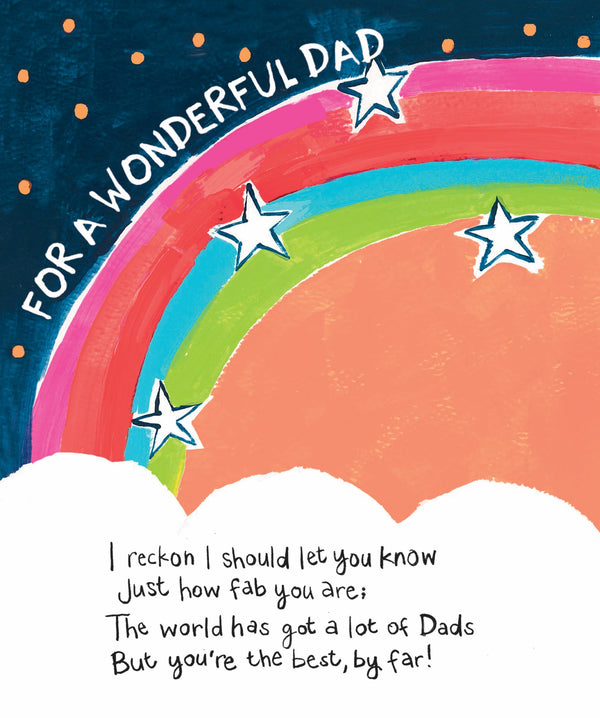 FOR A WONDERFUL DAD
I reckon I should let you know
Just how fab you are;
The world has got a lot of Dads
But you're the best, by far!